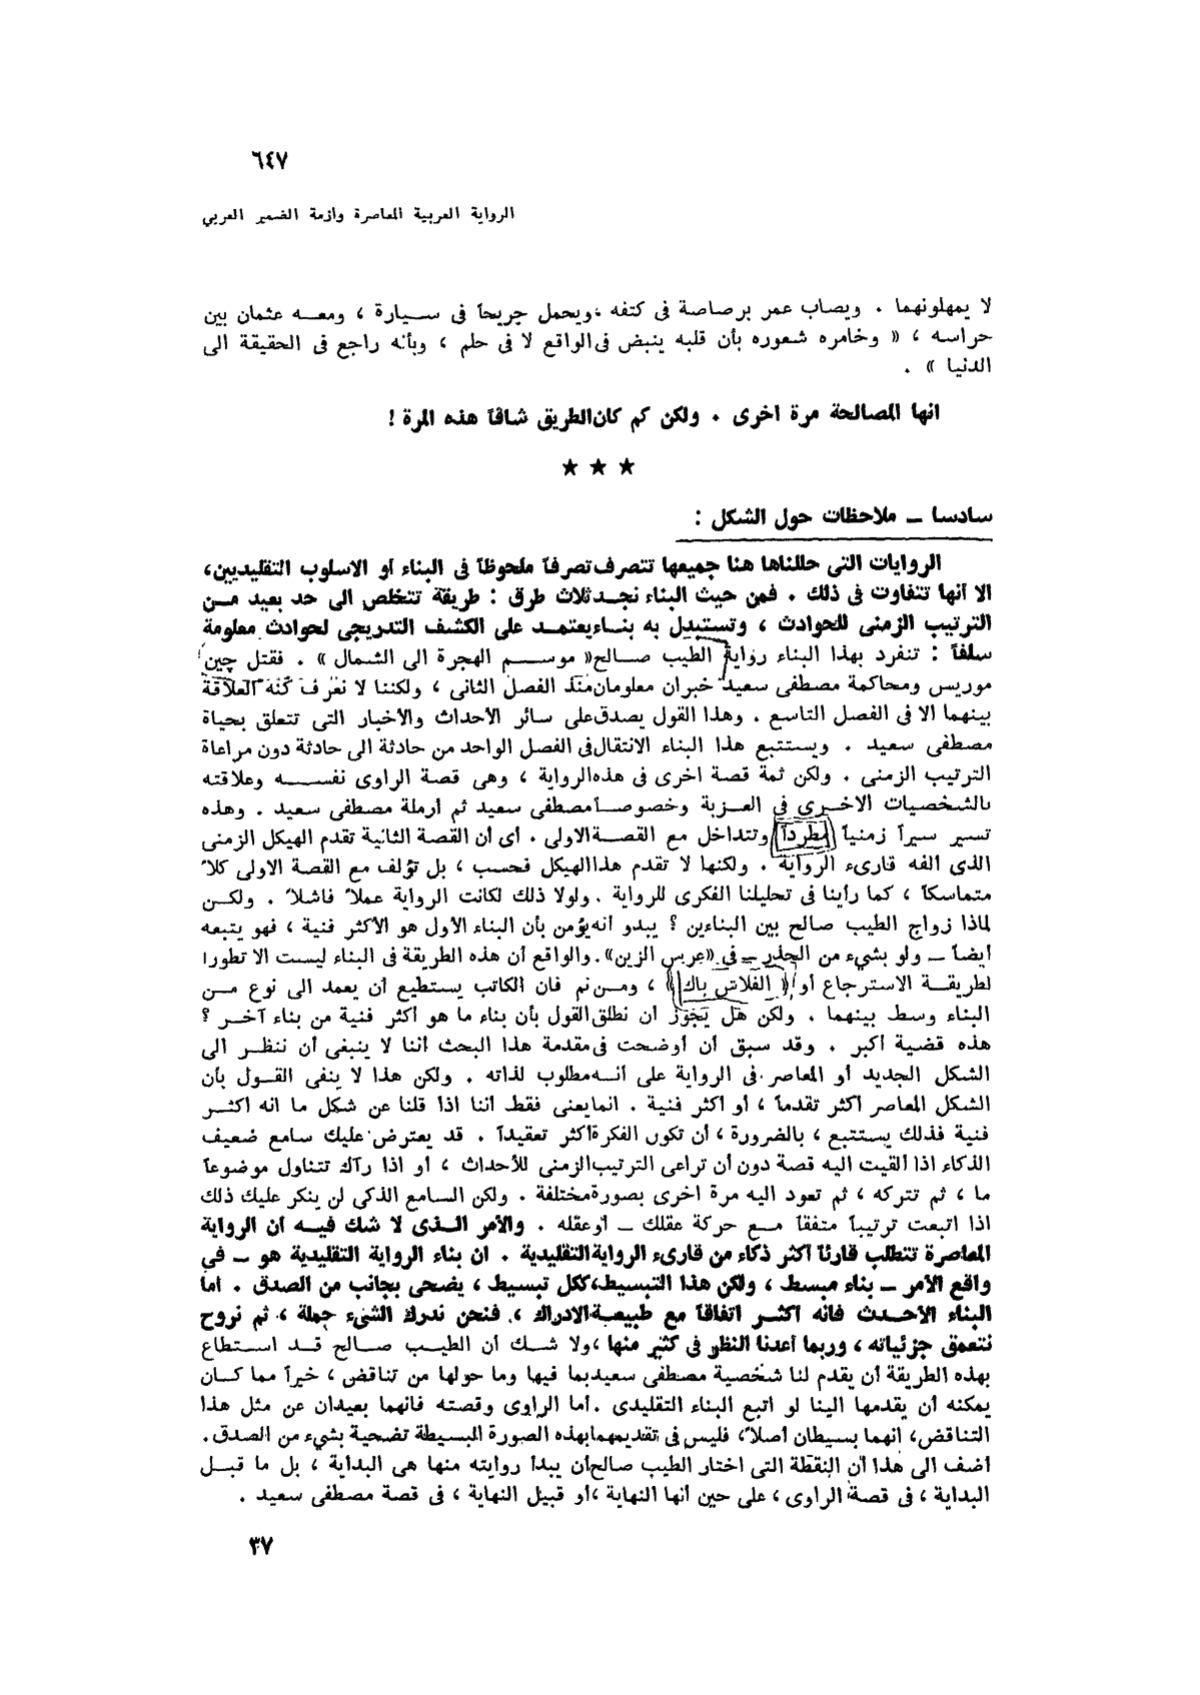 ٦٤٧
الرواية العربية المعاصرة وازمة الضمير العربي
لا يمهلونهما . ويصاب عمر برصاصة فى كتفه ،ويحمل جريحاً فى سيارة ، ومعه عثمان بين
حراسه ، « وخامره شعوره بأن قلبه ينبض فى الواقع لا فى حلم ، وبأنه راجع فى الحقيقة الى
الدنيا » .
انها المصالحة مرة اخرى . ولكن كم كان الطريق شاقاً هذه المرة !
★ ★ ★
سادسا – ملاحظات حول الشكل :
الروايات التى حللناها هنا جميعها تتصرف تصرفاً ملحوظاً فى البناء أو الاسلوب التقليديين،
الا أنها تتفاوت فى ذلك . فمن حيث البناء نجد ثلاث طرق : طريقة تتخلص الى حد بعيد من
الترتيب الزمنى للحوادث ، وتستبدل به بناء يعتمد على الكشف التدريجى لحوادث معلومة
سلفاً : تنفرد بهذا البناء رواية الطيب صالح « موسم الهجرة الى الشمال » . فقتل چين
موريس ومحاكمة مصطفى سعيد خبران معلومان منذ الفصل الثانى ، ولكننا لا نعرف كنه العلاقة
بينهما الا فى الفصل التاسع . وهذا القول يصدق على سائر الأحداث والأخبار التى تتعلق بحياة
مصطفى سعيد . ويستتبع هذا البناء الانتقال فى الفصل الواحد من حادثة الى حادثة دون مراعاة
الترتيب الزمنى . ولكن ثمة قصة اخرى فى هذه الرواية ، وهى قصة الراوى نفسه وعلاقته
بالشخصيات الاخرى فى العزبة وخصوصاً مصطفى سعيد ثم أرملة مصطفى سعيد . وهذه
تسير سيراً زمنياً مطرداً وتتداخل مع القصة الاولى . أى أن القصة الثانية تقدم الهيكل الزمنى
الذى الفه قارىء الرواية . ولكنها لا تقدم هذا الهيكل فحسب ، بل تؤلف مع القصة الاولى كلاً
متماسكاً ، كما رأينا فى تحليلنا الفكرى للرواية . ولولا ذلك لكانت الرواية عملاً فاشلاً . ولكن
لماذا زواج الطيب صالح بين البناءين ؟ يبدو أنه يؤمن بأن البناء الأول هو الأكثر فنية ، فهو يتبعه
أيضاً – ولو بشيء من الحذر – فى «عرس الزين» . والواقع أن هذه الطريقة فى البناء ليست الا تطورا
لطريقة الاسترجاع أو « الفلاش باك » ، ومن ثم فان الكاتب يستطيع أن يعمد الى نوع من
البناء وسط بينهما . ولكن هل يجوز أن نطلق القول بأن بناء ما هو أكثر فنية من بناء آخر ؟
هذه قضية أكبر . وقد سبق أن أوضحت فى مقدمة هذا البحث اننا لا ينبغى أن ننظر الى
الشكل الجديد أو المعاصر فى الرواية على أنه مطلوب لذاته . ولكن هذا لا ينفى القول بأن
الشكل المعاصر اكثر تقدماً ، أو اكثر فنية . انما يعنى فقط أننا اذا قلنا عن شكل ما انه اكثر
فنية فذلك يستتبع ، بالضرورة ، أن تكون الفكرة أكثر تعقيداً . قد يعترض عليك سامع ضعيف
الذكاء اذا ألقيت اليه قصة دون أن تراعى الترتيب الزمنى للأحداث ، أو اذا رآك تتناول موضوعاً
ما ، ثم تتركه ، ثم تعود اليه مرة اخرى بصورة مختلفة . ولكن السامع الذكى لن ينكر عليك ذلك
اذا اتبعت ترتيباً متفقاً مع حركة عقلك – أو عقله . والأمر الذى لا شك فيه ان الرواية
المعاصرة تتطلب قارئاً اكثر ذكاء من قارىء الرواية التقليدية . ان بناء الرواية التقليدية هو – فى
واقع الأمر – بناء مبسط ، ولكن هذا التبسيط، ككل تبسيط ، يضحى بجانب من الصدق . اما
البناء الأحدث فانه اكثر اتفاقاً مع طبيعة الادراك ، فنحن ندرك الشىء جملة ، ثم نروح
نتعمق جزئياته ، وربما أعدنا النظر فى كثير منها ،ولا شك أن الطيب صالح قد استطاع
بهذه الطريقة أن يقدم لنا شخصية مصطفى سعيد بما فيها وما حولها من تناقض ، خيراً مما كان
يمكنه أن يقدمها الينا لو اتبع البناء التقليدى . أما الراوى وقصته فانهما بعيدان عن مثل هذا
التناقض، انهما بسيطان أصلاً، فليس فى تقديمهما بهذه الصورة البسيطة تضحية بشيء من الصدق.
أضف الى هذا أن النقطة التى اختار الطيب صالح أن يبدأ روايته منها هى البداية ، بل ما قبل
البداية ، فى قصة الراوى ، على حين أنها النهاية ،أو قبيل النهاية ، فى قصة مصطفى سعيد .
٣٧